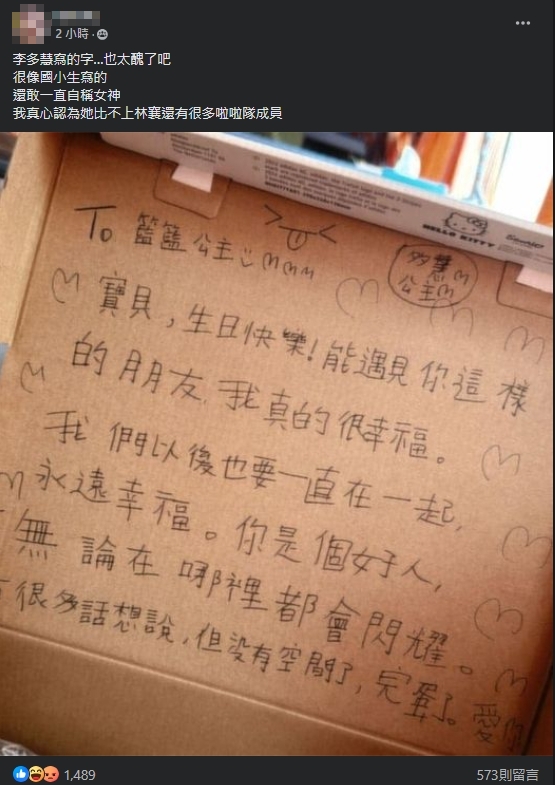 2 小時
李多慧寫的字...也太醜了吧
很像國小生寫的
還敢一直自稱女神
我真心認為她比不上林襄還有很多啦啦隊成員
HELLO KITTY
To 籃籃公主
多慧
公主
寶貝，生日快樂！能遇見你這樣
的朋友 我真的很幸福。
我們以後也要一直在一起，
永遠幸福。你是個好人，
無論在哪裡都會閃耀。
很多話想說，但没有空間了，完蛋了。愛你
1,489
573則留言